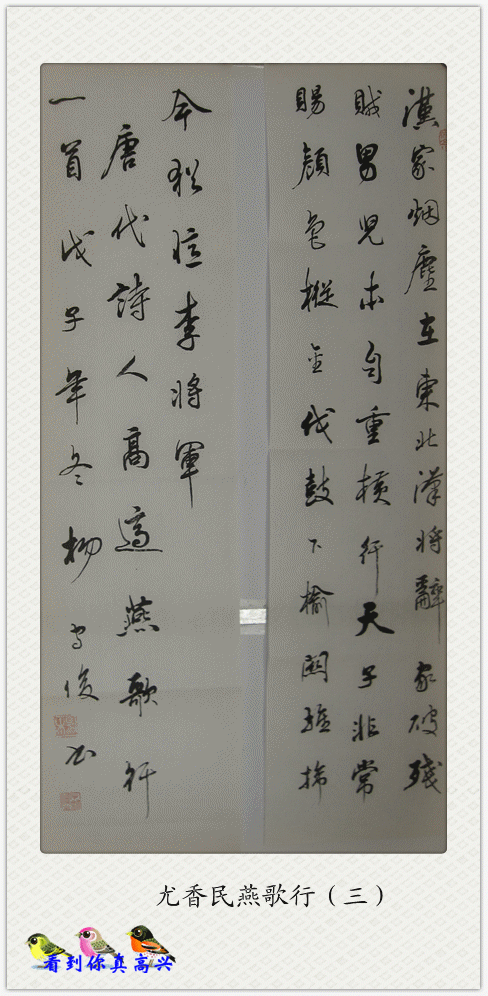 漢家烟塵在東北漢將辭家破殘
賊男兒本自重橫行天子非常
賜顏色摐金伐鼓下榆關旌旆
今猶憶李將軍
唐代詩人高適燕歌行
一首戊子年冬俊书
尤香民燕歌行（三）
看到你真高兴